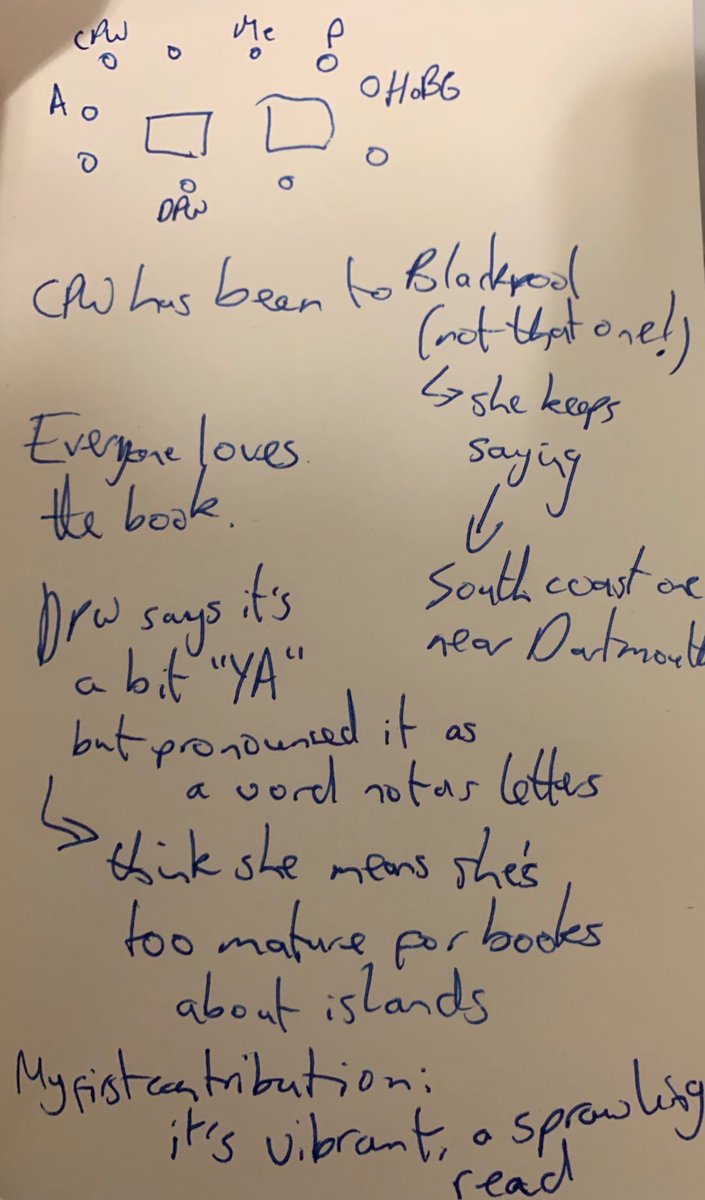 CPW
Me
P
A
HoBG
DPW
CPW has been to Blackpool
(not that one!)
↳ she keeps
saying
South coast one
near Dartmouth
Everyone loves
the book.
DPW says it's
a bit "YA"
but pronounced it as
a word not as letters
think she means she's
too mature for books
about islands
My first contribution:
it's vibrant, a sprawling
read